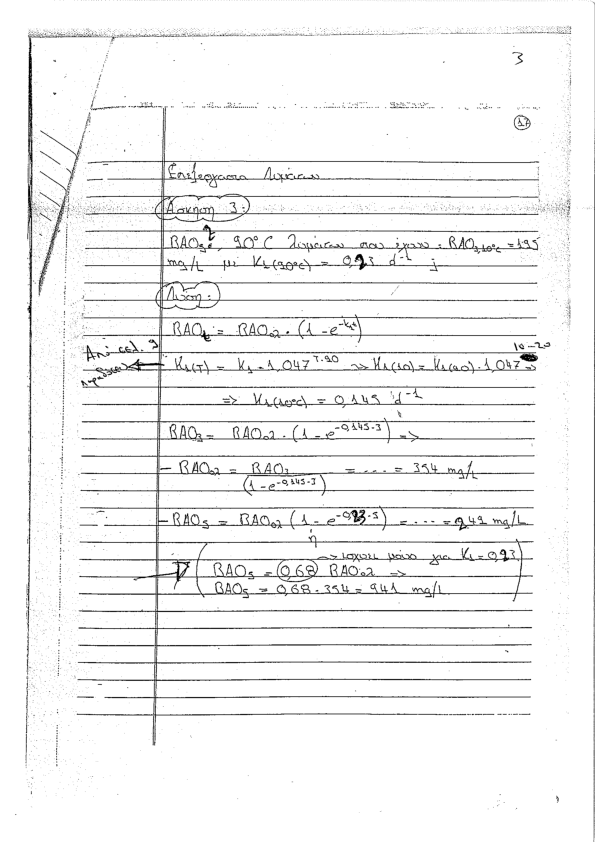 3
17
Επεξεργασία Λυμάτων
Άσκηση 3:
BAO5 ; 20°C λυμάτων που έχουν : BAO3,10°C = 125
mg/L με K1(20°C) = 0,23 d^-1 ;
Λύση:
BAOt = BAOολ · (1 - e^-k1t)
Από σελ. 9
K1(T) = K1 · 1,047^T-20 => K1(10) = K1(20) · 1,047^10-20 =>
=> K1(10°C) = 0,145 d^-1
BAO3 = BAOολ · (1 - e^-0,145·3) =>
- BAOολ = BAO3 / (1 - e^-0,145·3) = .... = 354 mg/L
- BAO5 = BAOολ (1 - e^-0,23·5) = .... = 242 mg/L
ή
-> ισχύει μόνο για K1 = 0,23
BAO5 = 0,68 BAOολ =>
BAO5 = 0,68 · 354 = 241 mg/L